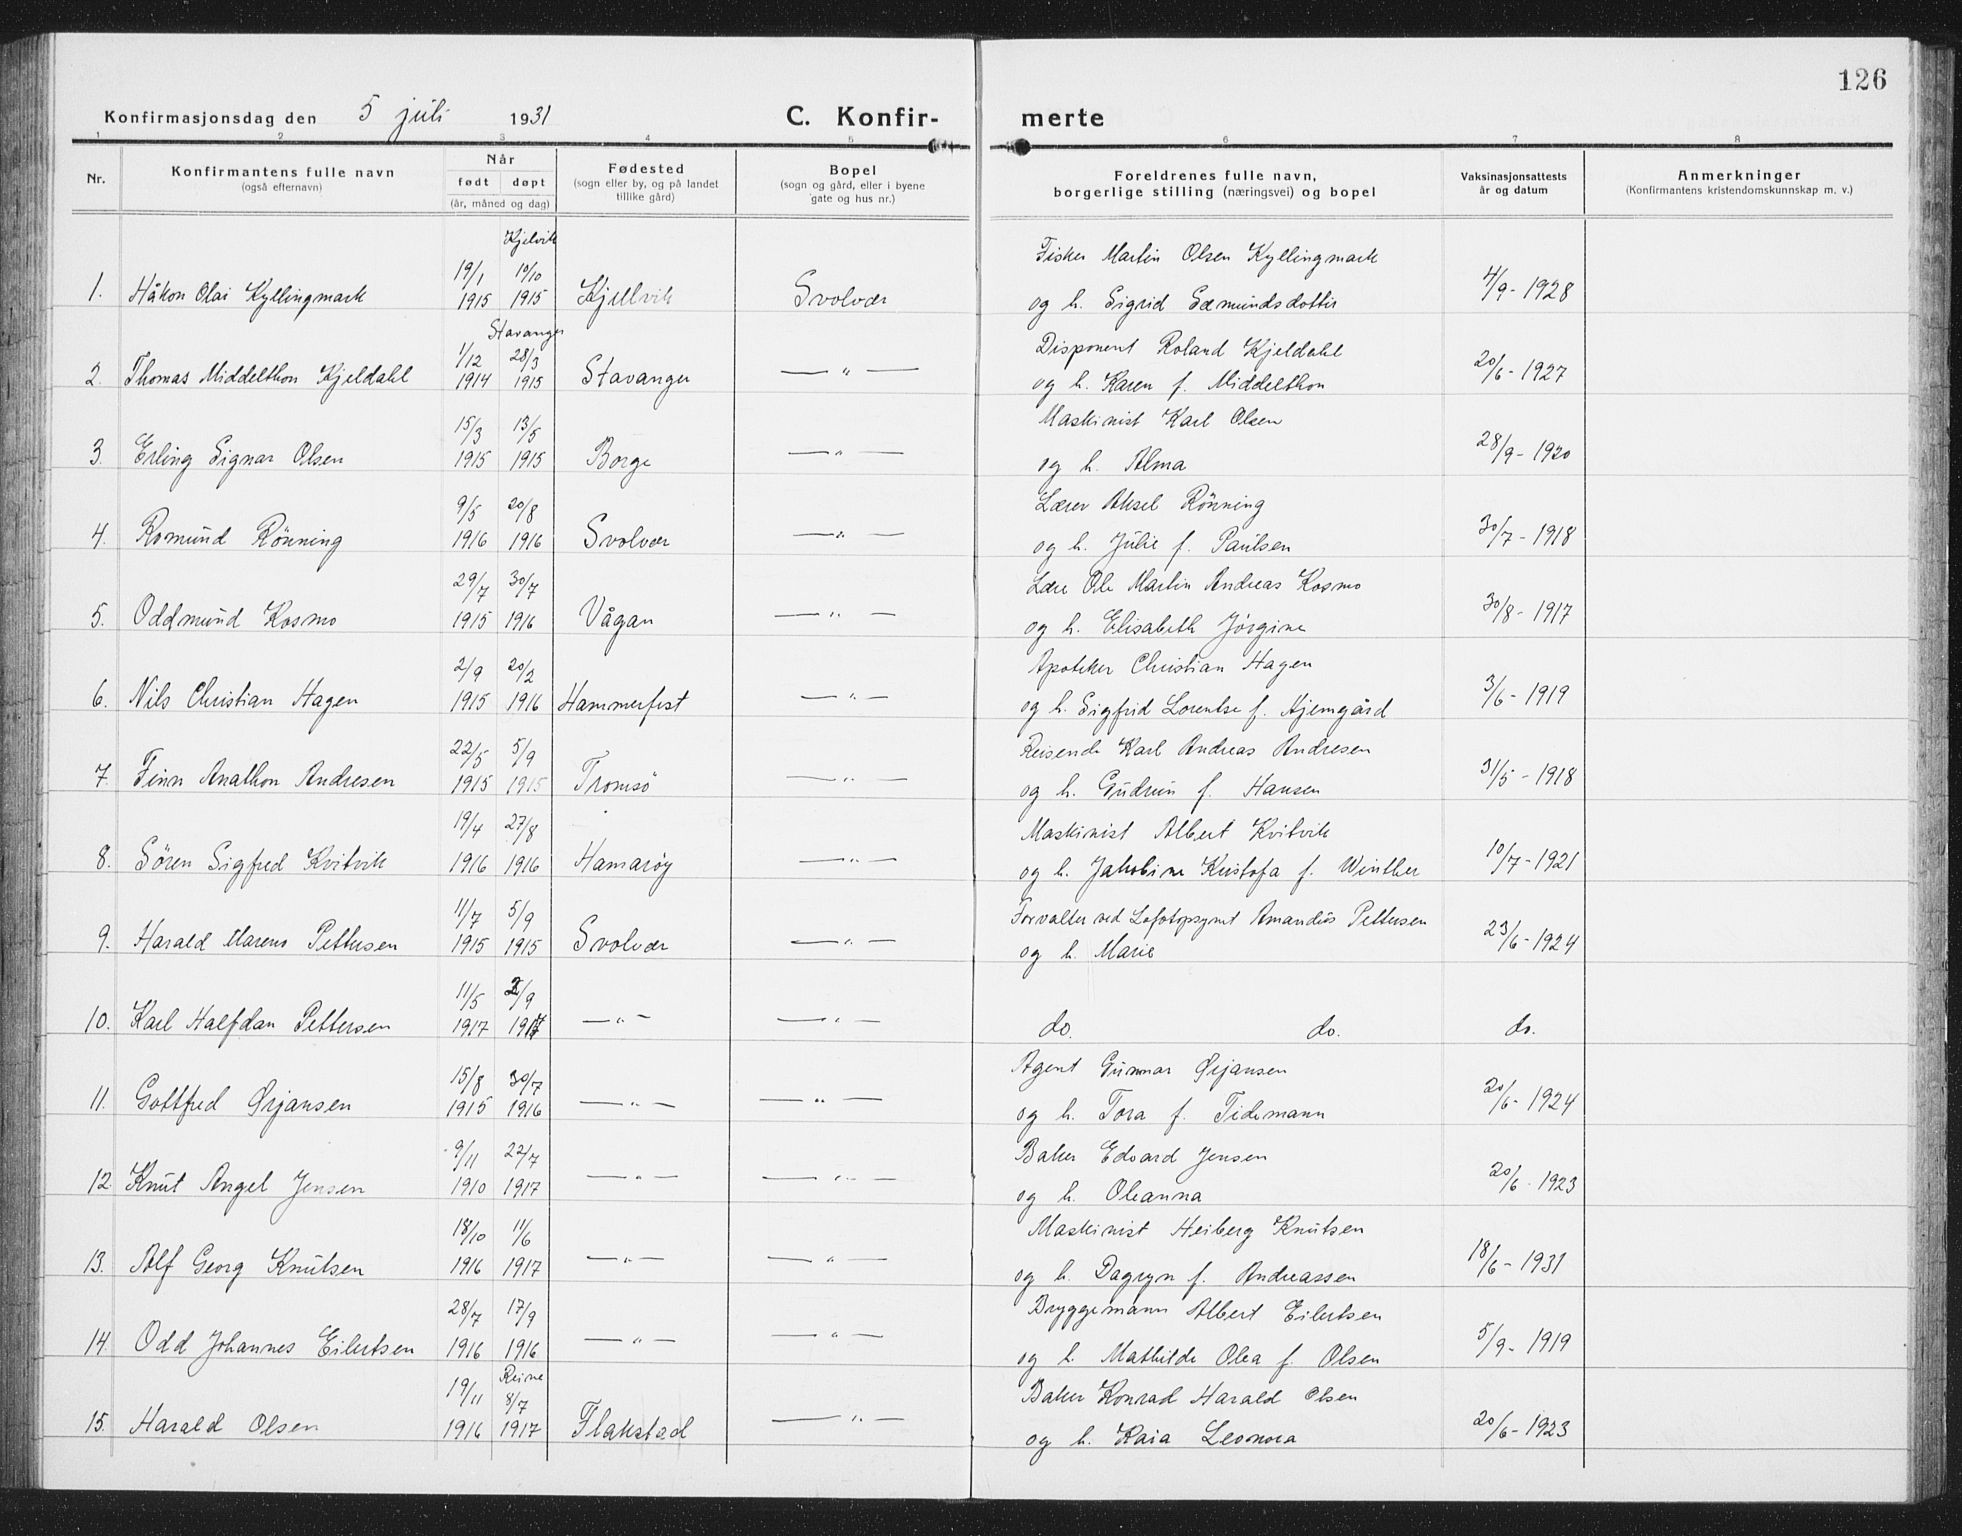 126
Konfirmasjonsdag den 5 juli 1931 C. Konfir- merte
1 2 3 4 5 6 7 8
Nr. Konfirmantens fulle navn (også efternavn) Når født døpt (år, måned og dag) Fødested (sogn eller by, og på landet tillike gård) Bopel (sogn og gård, eller i byene gate og hus nr.) Foreldrenes fulle navn, borgerlige stilling (næringsvei) og bopel Vaksinasjonsattests år og datum Anmerkninger (Konfirmantens kristendomskunnskap m. v.)
Kjelvik
19/1 10/10 Fisker Martin Olsen Kyllingmark
1. Håkon Olai Kyllingmark 1915 1915 Kjellvik Svolvær og h. Sigrid Sæmundsdottir 4/9-1928
Stavanger
1/12 28/3 Disponent Roland Kjeldahl
2. Thomas Middelthon Kjeldahl 1914 1915 Stavanger — " — og h. Karen f. Middelthon 20/6-1927
15/3 13/5 Maskinist Karl Olsen
3. Erling Signar Olsen 1915 1915 Borge — " — og h. Alma 28/9-1920
9/5 20/8 Lærer Aksel Rönning
4. Romund Rönning 1916 1916 Svolvær — " — og h. Julie f. Paulsen 30/7-1918
29/7 30/7 Lære Ole Martin Andreas Kosmo
5. Oddmund Kosmo 1915 1916 Vågan — " — og h. Elisabeth Jörgine 30/8-1917
2/9 20/2 Apoteker Christian Hagen
6. Nils Christian Hagen 1915 1916 Hammerfest — " — og h. Sigfrid Lorentse f. Hjemgård 3/6-1919
22/5 5/9 Reisende Karl Andreas Andresen
7. Finn Anathon Andresen 1915 1915 Tromsö — " — og h. Gudrun f. Hansen 31/5-1918
19/4 27/8 Maskinist Albert Kvitvik
8. Sören Sigfred Kvitvik 1916 1916 Hamarøy — " — og h. Jakobine Kristofa f. Winther 10/7-1921
11/7 5/9 Forvalter ved Lofotpsynt Amandus Pettersen
9. Harald Marens Pettersen 1915 1915 Svolvær — " — og h. Marie 23/6-1924
11/5 2/9
10. Karl Halfdan Pettersen 1917 1917 — " — — " — do. do. do.
15/8 30/7 Agent Gunnar Ørjansen
11. Gottfred Ørjansen 1915 1916 — " — — " — og h. Tora f. Tidemann 20/6-1924
9/11 22/7 Baker Edvard Jensen
12 Knut Angel Jensen 1910 1917 — " — — " — og h. Oleanna 20/6-1923
18/10 11/6 Maskinist Heiberg Knutsen
13. Alf Georg Knutsen 1916 1917 — " — — " — og h. Dagryn f. Andreassen 18/6-1931
28/7 17/9 Bryggemann Albert Eilertsen
14. Odd Johannes Eilertsen 1916 1916 — " — — " — og h. Mathilde Olea f. Olsen 5/9-1919
Reine
19/11 8/7 Baker Konrad Harald Olsen
15. Harald Olsen 1916 1917 Flakstad — " — og h. Kaia Leonora 20/6-1923